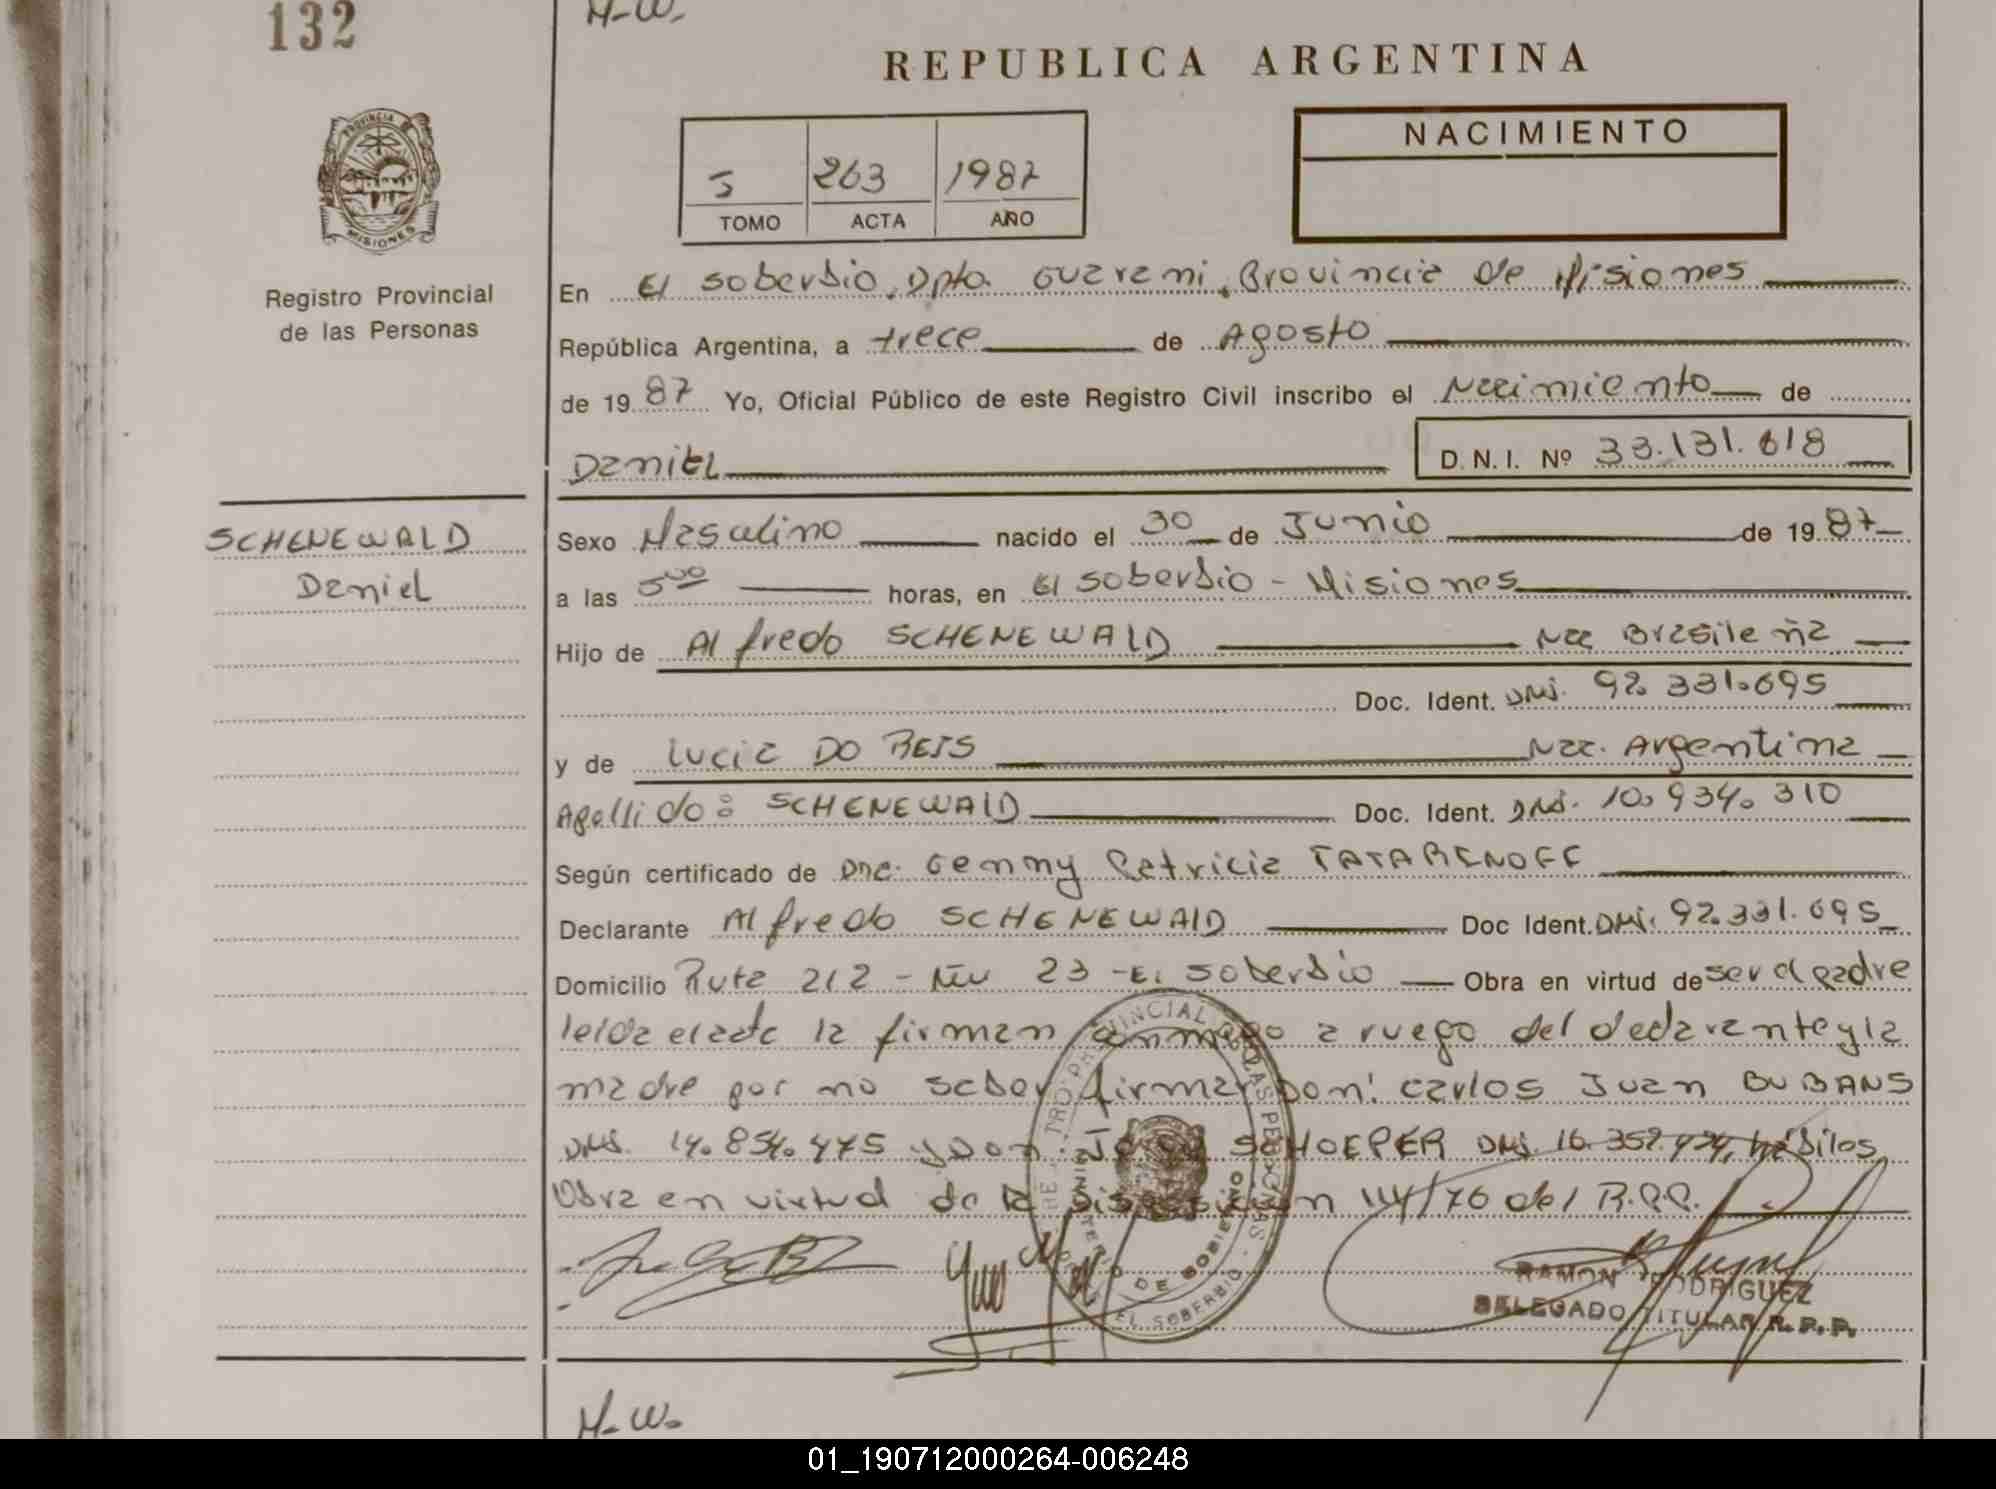 132
H-W.
REPUBLICA ARGENTINA
PROVINCIA DE
MISIONES
Registro Provincial
de las Personas
5 263 1987
TOMO ACTA AÑO
NACIMIENTO
En El Soberbio, Dpto. Guarani, Provincia de Misiones
República Argentina, a trece de Agosto
de 1987 Yo, Oficial Público de este Registro Civil inscribo el Nacimiento de
DaniEL D. N. I. Nº 33.131.618
SCHENEWALD
Daniel
Sexo Masculino nacido el 30 de Junio de 1987
a las 5 00 horas, en El Soberbio - Misiones
Hijo de Alfredo SCHENEWALD Nac Brasileña
Doc. Ident. DNI. 92.331.695
y de Lucia DO REIS Nac. Argentina
Apellido: SCHENEWALD Doc. Ident. DNI. 10.934.310
Según certificado de Dra. Gemmy Patricia TATARENOFF
Declarante Alfredo SCHENEWALD Doc Ident. DNI. 92.331.695
Domicilio Ruta 212 - Km 23 - El Soberbio Obra en virtud de ser el padre
leida el acta la firman conmigo a ruego del declarante y la
madre por no saber firmar Don: Carlos Juan BUBANS
DNI. 14.854.475 y Don: SCHOEPER DNI. 16.359.424, hábiles
Obra en virtud de la Disposicion 114/76 del R.P.P.
RAMON RODRIGUEZ
DELEGADO TITULAR R.P.P.
H-W.
01_190712000264-006248